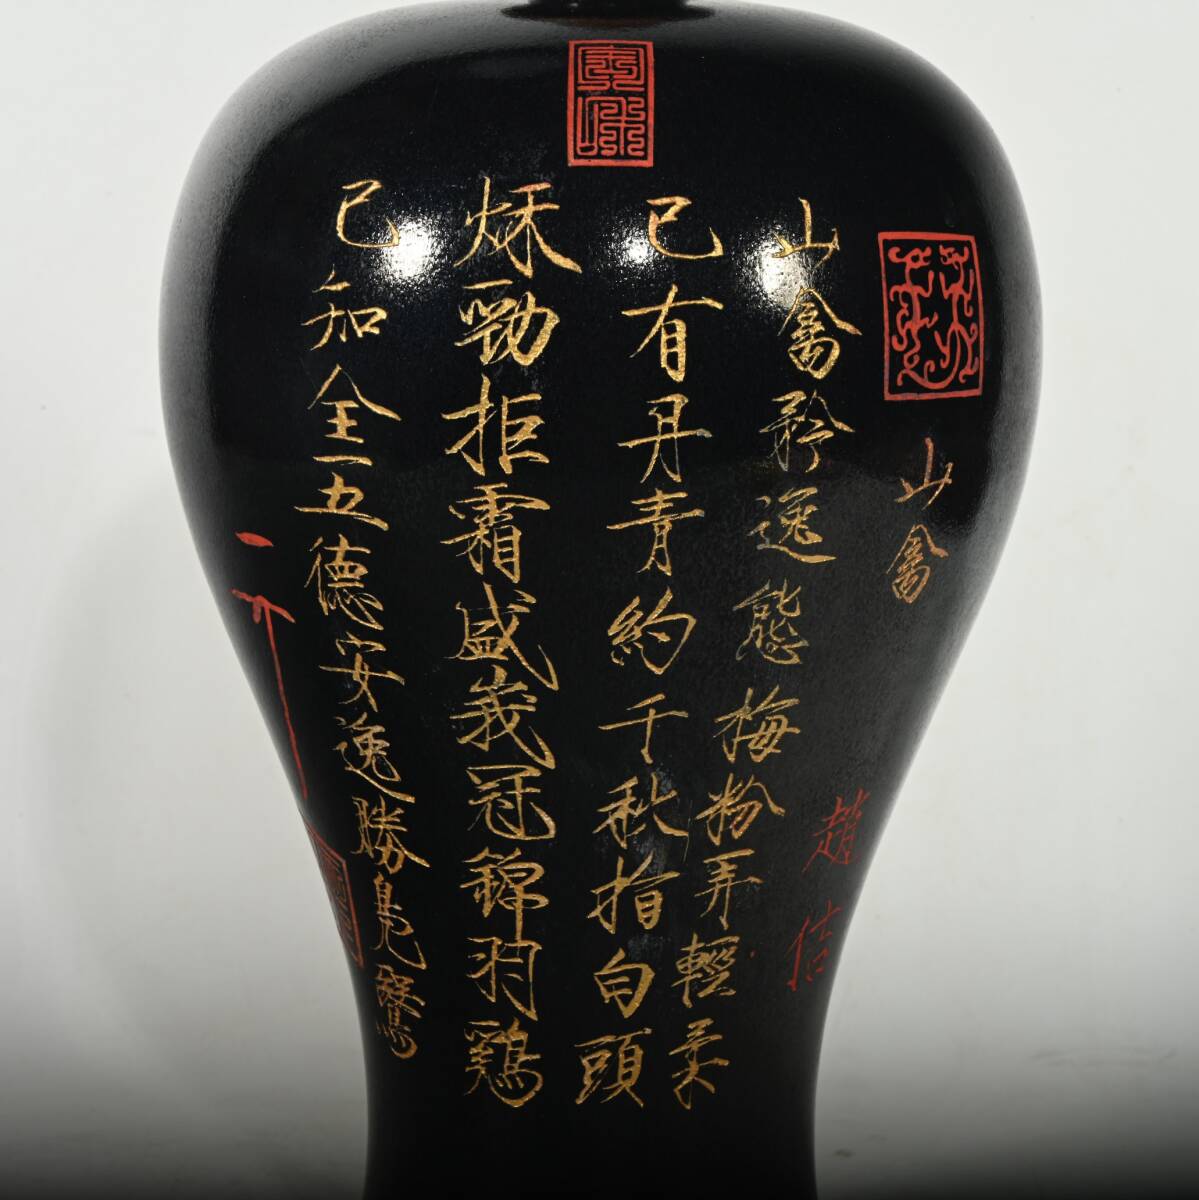 山禽
趙佶
山禽矜逸態梅粉弄輕柔
已有丹青約千秋指白頭
秌勁拒霜盛峩冠錦羽鷄
已知全五德安逸勝鳧鷖